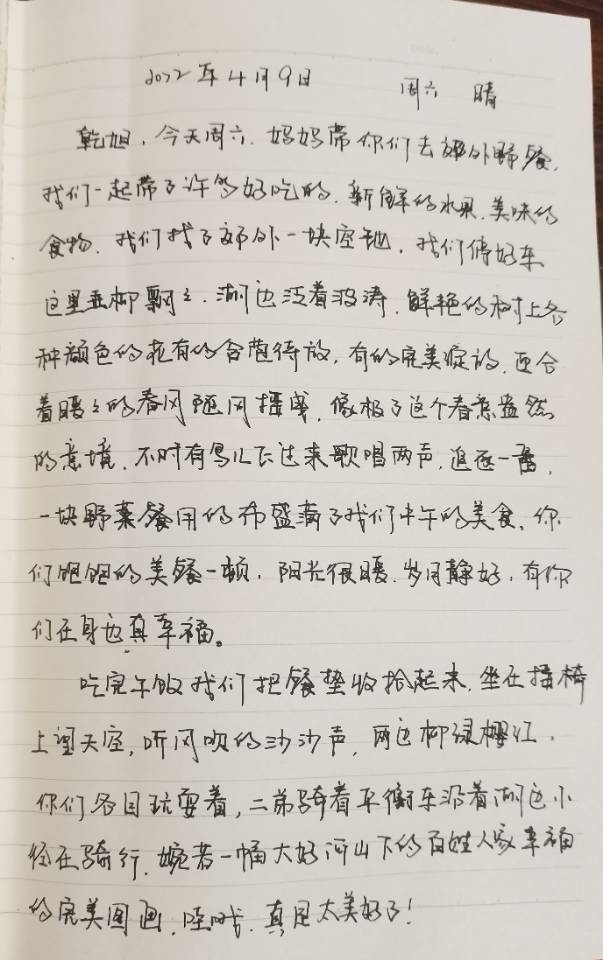 2022年4月9日 周六 晴
乾旭,今天周六.妈妈带你们去郊外野餐,
我们一起带了许多好吃的.新鲜的水果.美味的
食物.我们找了郊外一块空地,我们停好车
这里垂柳飘飘.湖边泛着波涛.鲜艳的树上各
种颜色的花有的含苞待放,有的完美绽放.迎合
着暖暖的春风随风摇曳,像极了这个春意盎然
的意境.不时有鸟儿飞过来歌唱两声,追逐一番,
一块野菜餐用的布盛满了我们中午的美食,你
们饱饱的美餐一顿,阳光很暖.岁月静好,有你
们在身边真幸福。
吃完午饭我们把餐垫收拾起来.坐在摇椅
上望天空,听风吹的沙沙声,两边柳绿樱红.
你们各自玩耍着,二弟骑着平衡车沿着湖边小
径在骑行.婉若一幅大好河山下的百姓人家幸福
的完美图画.哇哦.真是太美好了!